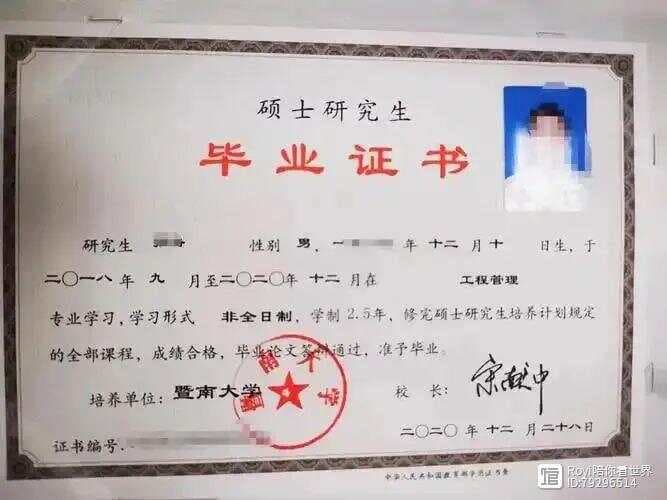 硕士研究生
毕业证书
研究生 性别 男，一 年 十二 月 十 日生，于
二〇一八 年 九 月至二〇二〇年 十二 月在 工程管理
专业学习，学习形式 非全日制，学制 2.5年，修完硕士研究生培养计划规定
的全部课程，成绩合格，毕业论文答辩通过，准予毕业。
培养单位：暨南大学 校 长：宋献中
证书编号.
二〇二〇 年 十二 月 二十八 日
暨南大学
中华人民共和国教育部学历证书查
Royi陪你看世界
ID:79296514